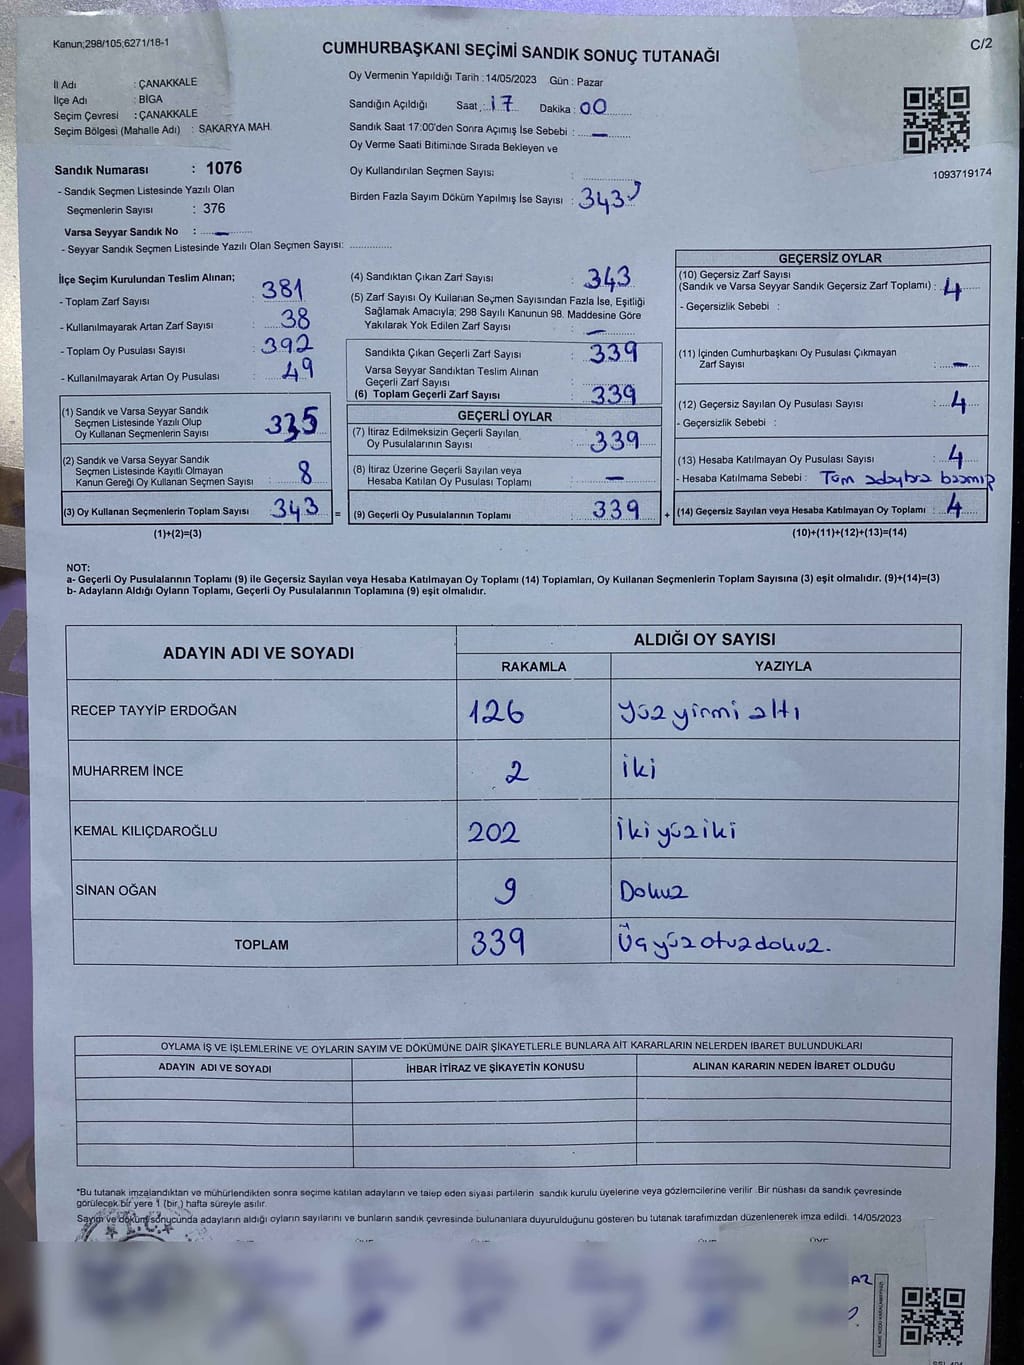 Kanun;298/105;6271/18-1
C/2
CUMHURBAŞKANI SEÇİMİ SANDIK SONUÇ TUTANAĞI
İl Adı : ÇANAKKALE
İlçe Adı : BİGA
Seçim Çevresi : ÇANAKKALE
Seçim Bölgesi (Mahalle Adı) : SAKARYA MAH
Oy Vermenin Yapıldığı Tarih :14/05/2023 Gün : Pazar
Sandığın Açıldığı Saat : 17 Dakika : 00
Sandık Saat 17:00'den Sonra Açımış İse Sebebi : —
Oy Verme Saati Bitiminde Sırada Bekleyen ve
Oy Kullandırılan Seçmen Sayısı :
Birden Fazla Sayım Döküm Yapılmış İse Sayısı : 343
1093719174
Sandık Numarası : 1076
- Sandık Seçmen Listesinde Yazılı Olan
Seçmenlerin Sayısı : 376
Varsa Seyyar Sandık No : —
- Seyyar Sandık Seçmen Listesinde Yazılı Olan Seçmen Sayısı:
İlçe Seçim Kurulundan Teslim Alınan;
- Toplam Zarf Sayısı : 381
- Kullanılmayarak Artan Zarf Sayısı : 38
- Toplam Oy Pusulası Sayısı : 392
- Kullanılmayarak Artan Oy Pusulası : 49
(1) Sandık ve Varsa Seyyar Sandık
Seçmen Listesinde Yazılı Olup
Oy Kullanan Seçmenlerin Sayısı : 335
(2) Sandık ve Varsa Seyyar Sandık
Seçmen Listesinde Kayıtlı Olmayan
Kanun Gereği Oy Kullanan Seçmen Sayısı : 8
(3) Oy Kullanan Seçmenlerin Toplam Sayısı : 343
(1)+(2)=(3)
(4) Sandıktan Çıkan Zarf Sayısı : 343
(5) Zarf Sayısı Oy Kullanan Seçmen Sayısından Fazla İse, Eşitliği
Sağlamak Amacıyla; 298 Sayılı Kanunun 98. Maddesine Göre
Yakılarak Yok Edilen Zarf Sayısı : —
Sandıkta Çıkan Geçerli Zarf Sayısı : 339
Varsa Seyyar Sandıktan Teslim Alınan
Geçerli Zarf Sayısı :
(6) Toplam Geçerli Zarf Sayısı : 339
GEÇERLİ OYLAR
(7) İtiraz Edilmeksizin Geçerli Sayılan
Oy Pusulalarının Sayısı : 339
(8) İtiraz Üzerine Geçerli Sayılan veya
Hesaba Katılan Oy Pusulası Toplamı : —
= (9) Geçerli Oy Pusulalarının Toplamı : 339 +
GEÇERSİZ OYLAR
(10) Geçersiz Zarf Sayısı
(Sandık ve Varsa Seyyar Sandık Geçersiz Zarf Toplamı) : 4
- Geçersizlik Sebebi :
(11) İçinden Cumhurbaşkanı Oy Pusulası Çıkmayan
Zarf Sayısı : —
(12) Geçersiz Sayılan Oy Pusulası Sayısı : 4
- Geçersizlik Sebebi :
(13) Hesaba Katılmayan Oy Pusulası Sayısı : 4
- Hesaba Katılmama Sebebi : Tüm adaylara basmış
(14) Geçersiz Sayılan veya Hesaba Katılmayan Oy Toplamı : 4
(10)+(11)+(12)+(13)=(14)
NOT:
a- Geçerli Oy Pusulalarının Toplamı (9) ile Geçersiz Sayılan veya Hesaba Katılmayan Oy Toplamı (14) Toplamları, Oy Kullanan Seçmenlerin Toplam Sayısına (3) eşit olmalıdır. (9)+(14)=(3)
b- Adayların Aldığı Oyların Toplamı, Geçerli Oy Pusulalarının Toplamına (9) eşit olmalıdır.
ADAYIN ADI VE SOYADI
ALDIĞI OY SAYISI
RAKAMLA YAZIYLA
RECEP TAYYİP ERDOĞAN 126 Yüz yirmi altı
MUHARREM İNCE 2 İki
KEMAL KILIÇDAROĞLU 202 İki yüz iki
SİNAN OĞAN 9 Dokuz
TOPLAM 339 Üç yüz otuz dokuz.
OYLAMA İŞ VE İŞLEMLERİNE VE OYLARIN SAYIM VE DÖKÜMÜNE DAİR ŞİKAYETLERLE BUNLARA AİT KARARLARIN NELERDEN İBARET BULUNDUKLARI
ADAYIN ADI VE SOYADI İHBAR İTİRAZ VE ŞİKAYETİN KONUSU ALINAN KARARIN NEDEN İBARET OLDUĞU
*Bu tutanak imzalandıktan ve mühürlendikten sonra seçime katılan adayların ve talep eden siyasi partilerin sandık kurulu üyelerine veya gözlemcilerine verilir. Bir nüshası da sandık çevresinde
görülecek bir yere 1 (bir) hafta süreyle asılır.
Sayım ve döküm sonucunda adayların aldığı oyların sayılarını ve bunların sandık çevresinde bulunanlara duyurulduğunu gösteren bu tutanak tarafımızdan düzenlenerek imza edildi. 14/05/2023